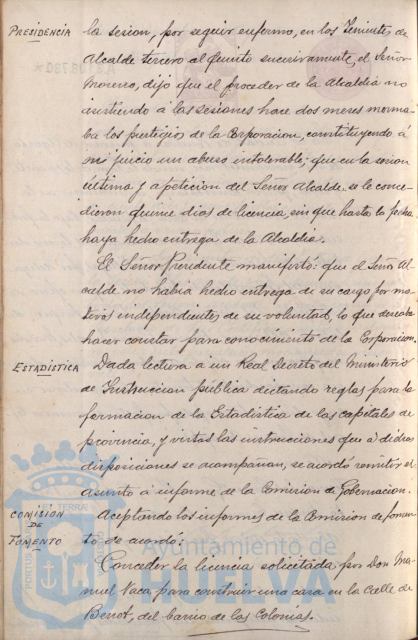 PRESIDENCIA
la sesion, por seguir enfermo, en los Tenientes de
Alcalde tercero al quinto sucesivamente, el Señor
Moreno, dijo que el proceder de la Alcaldia no
asistiendo á las sesiones hace dos meses merma-
ba los prestigios de la Corporacion, constituyendo á
mi juicio un abuso intolerable; que en la sesion
última y a peticion del Señor Alcalde se le conce-
dieron quince dias de licencia, sin que hasta la fecha
haya hecho entrega de la Alcaldia.
El Señor Presidente manifestó: que el Señor Al-
calde no habia hecho entrega de su cargo por mo-
tivos independientes de su voluntad, lo que deseaba
hacer constar para conocimiento de la Corporacion.
ESTADÍSTICA
Dada lectura á un Real Decreto del Ministerio
de Instruccion pública dictando reglas para la
formacion de la Estadistica de las capitales de
provincia, y vistas las instrucciones que á dichas
disposiciones se acompañan, se acordó remitir el
asunto á informe de la Comision de Gobernacion.
COMISION
DE
FOMENTO
Aceptando los informes de la Comision de fomen-
to se acordó:
Conceder la licencia solicitada por Don Ma-
nuel Vaca, para construir una casa en la Calle de
Benot, del barrio de las Colonias.
Ayuntamiento de
HUELVA
PORTUS
TERRÆ